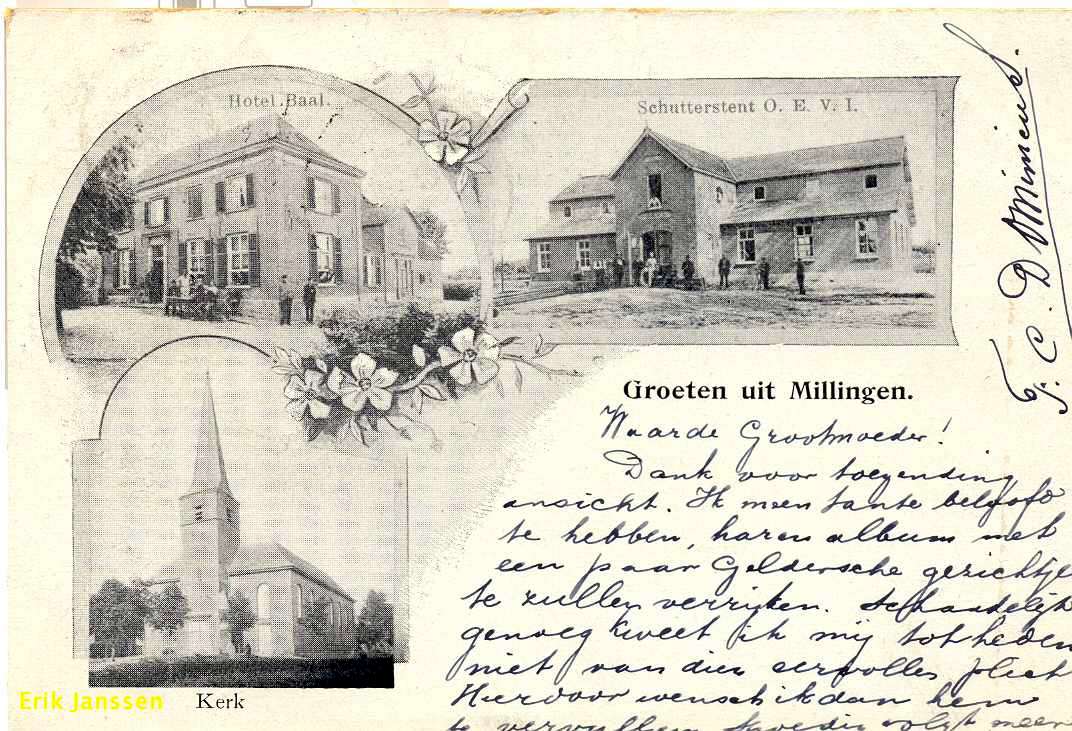 Hotel Baal.
Schutterstent O. E. V. I.
Groeten uit Millingen.
Waarde Grootmoeder!
Dank voor toezending
ansicht. Ik meen tante beloofd
te hebben, haren album met
een paar Geldersche gezichtje
te zullen verrijken. Schandelijk
genoeg kweet ik mij tot heden
niet van dien eervollen plicht
Hiervoor wensch ik dan hem
te vervullen spoedig volgt meer
Kerk
Erik Janssen